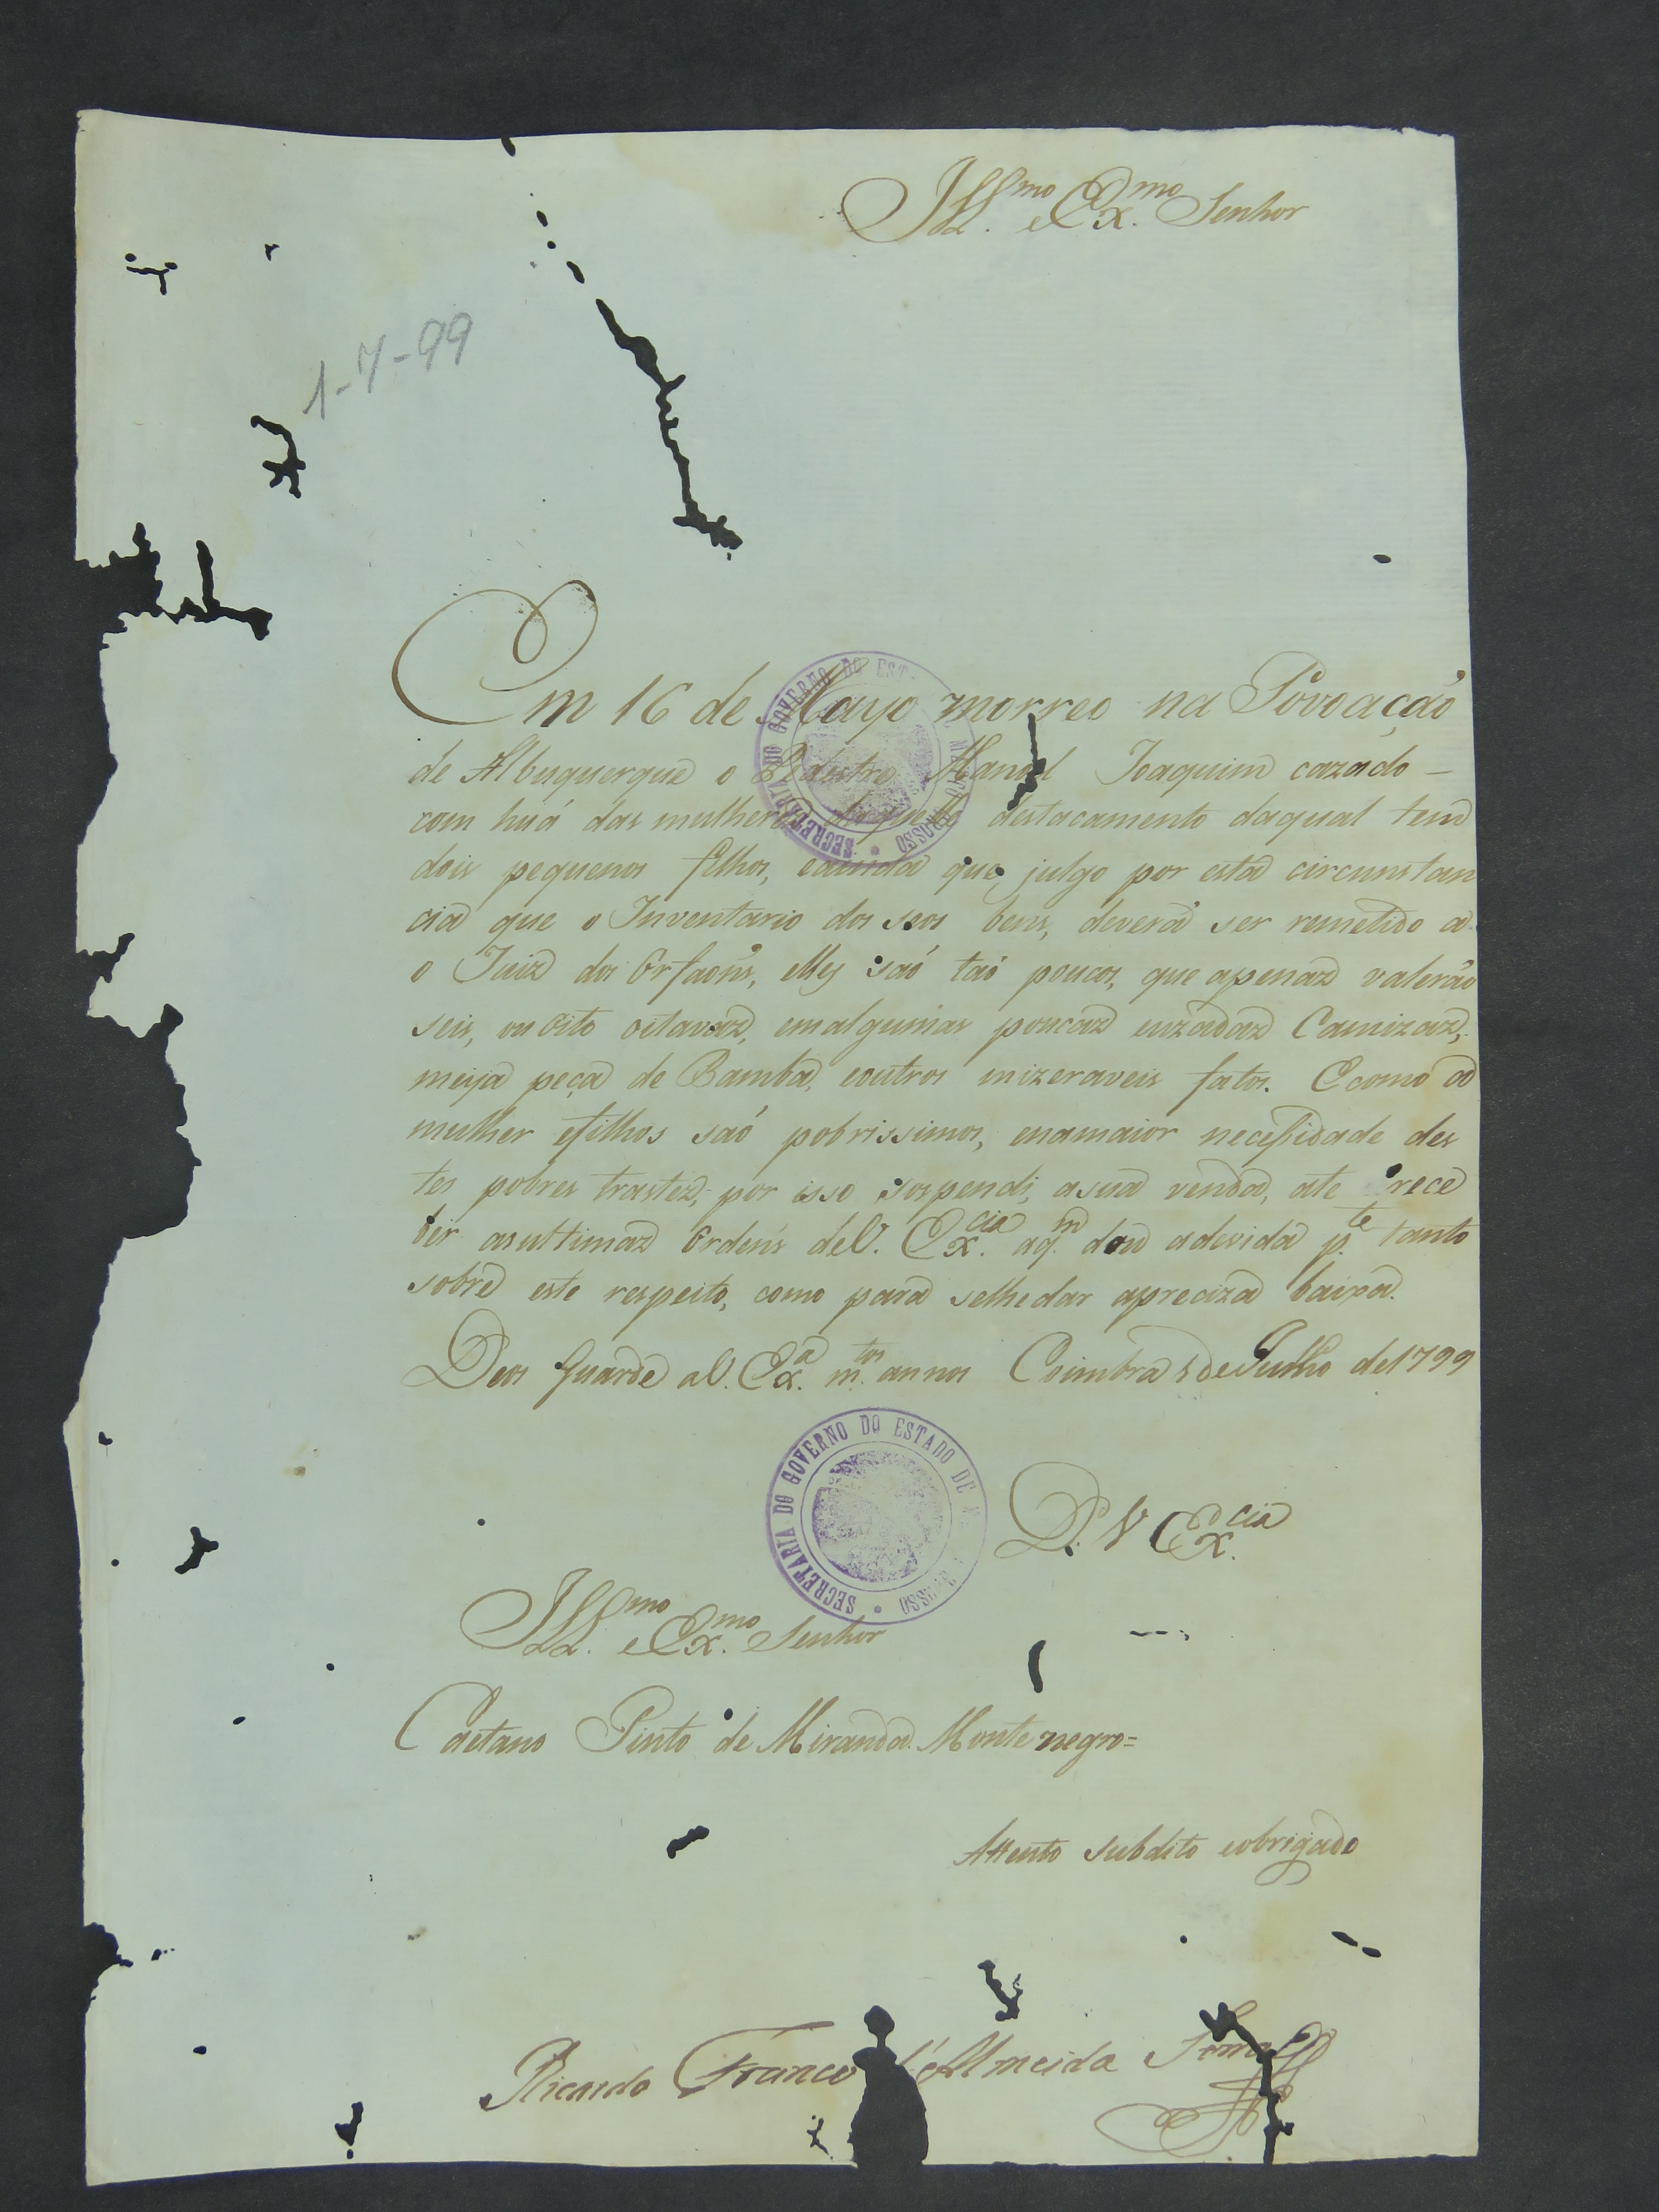 Ill.mo e Ex.mo Senhor
1-7-99
Em 16 de Mayo morreo na Povoação
de Albuquerque o Pedestre Manoel Joaquim cazado
com huá das mulheres daquelle destacamento daqual tem
dois pequenos filhos, eainda que, julgo por esta circunstan
cia que o Inventario dos seos bens, deverá ser remetido a
o Juiz dos Orfaons, elles saó taó poucos, que apenaz valeráo
seis, ou oito oitavaz, emalgumas poucaz uzadaz Camizaz,
meya peça de Bamba, eoutros mizeraveis fatos. Ecomo a
mulher efilhos saó pobrissimos, enamaior necessidade des
tes pobres trastez, por isso sospendi, asua venda, ate rece
ber asultimaz Ordens deV. Ex.cia aq.m dou adevida p.te tanto
sobre este respeito, como para selhedar apreciza baixa.
Deos Guarde aV. Ex.a m.tos annos Coimbra de Julho de1799
SECRETARIA DO GOVERNO DO ESTADO DE M GROSSO
D. V Ex.cia
Ill.mo e Ex.mo Senhor
Caetano Pinto de Miranda Monte negro=
Attento subdito eobrigado
Ricardo Franco d'Almeida Serra